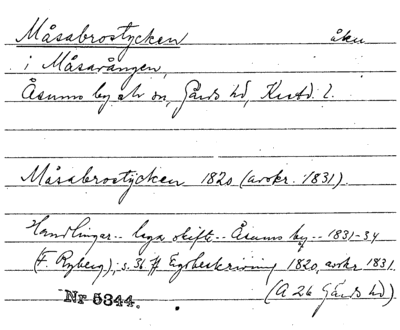 Måsabrostycken åker
i Måsavången,
Åsums by ah on, Gärds hd, Kristd. l.
Måsabrostycken 1820 (avskr. 1831).
Handlingar -- laga skifte -- Åsums by -- 1831-34
(F. Ryberg), s. 36 ff Egobeskrivning 1820, avskr 1831
(A 26 Gärds hd)
Nr 5344.